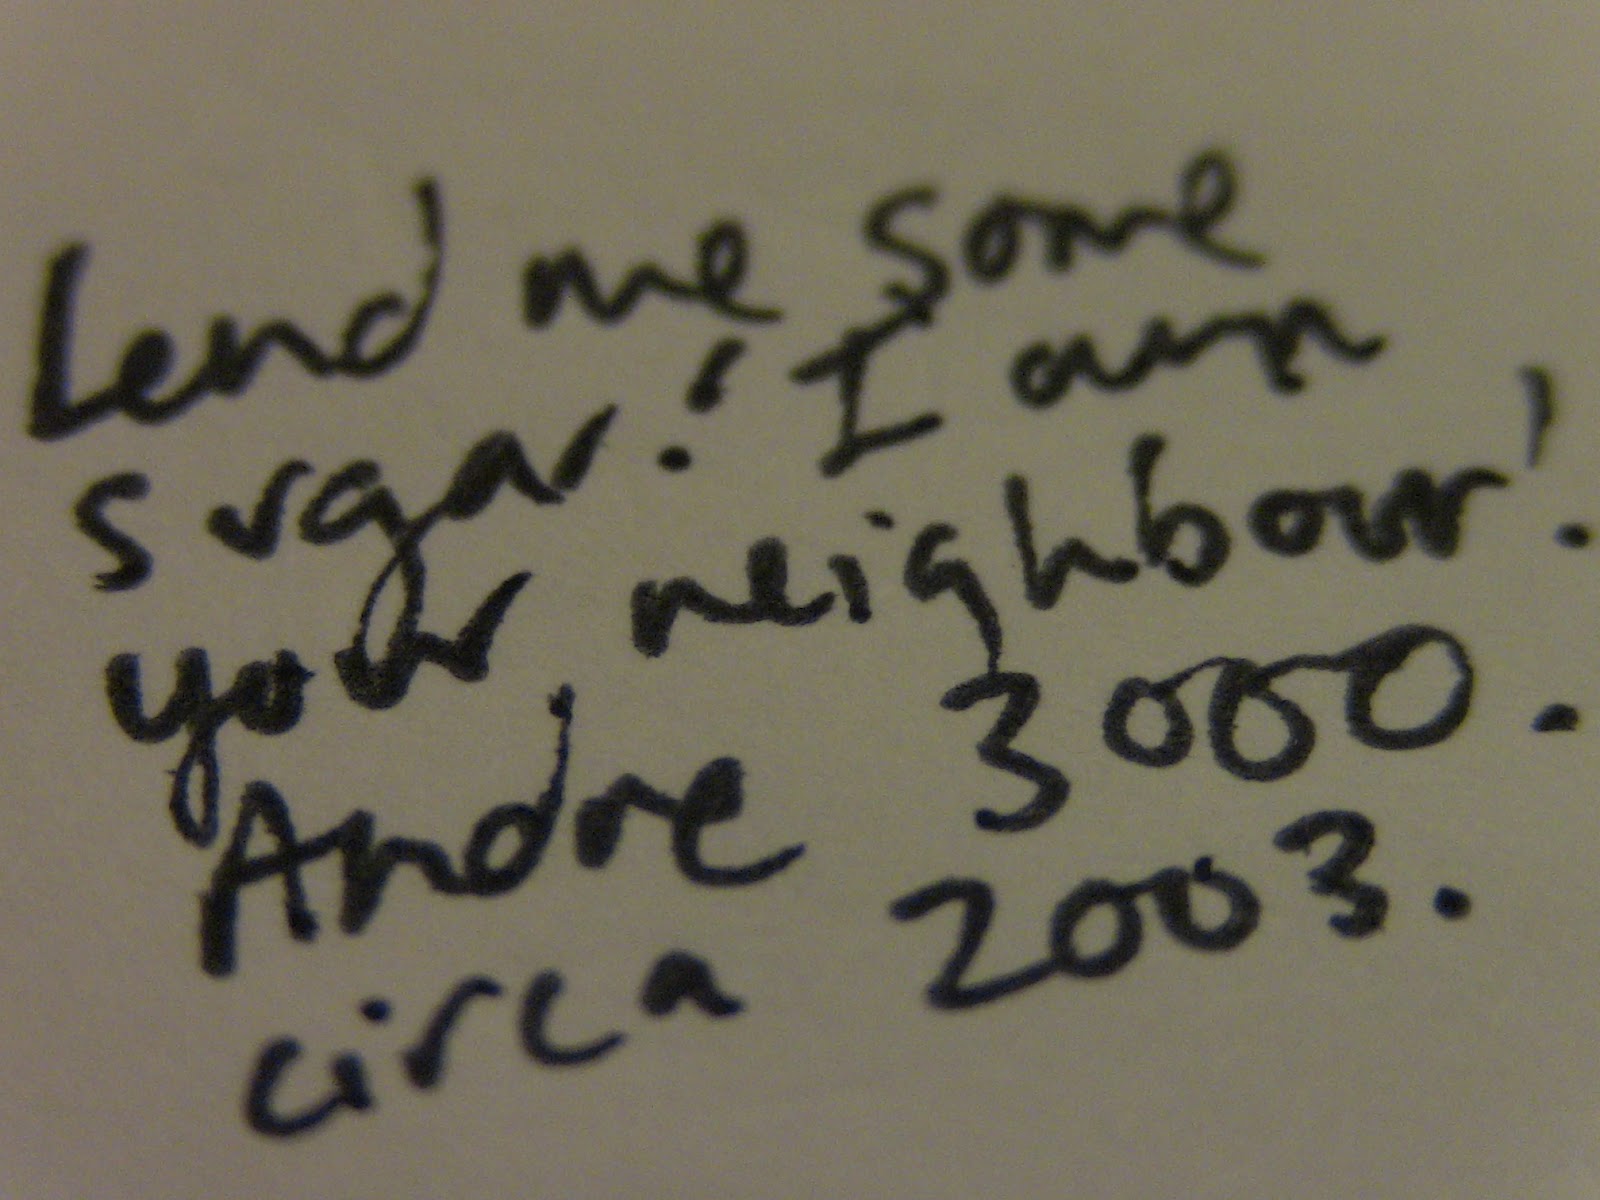 Lend me some
sugar! I am
your neighbour!
Andre 3000.
circa 2003.